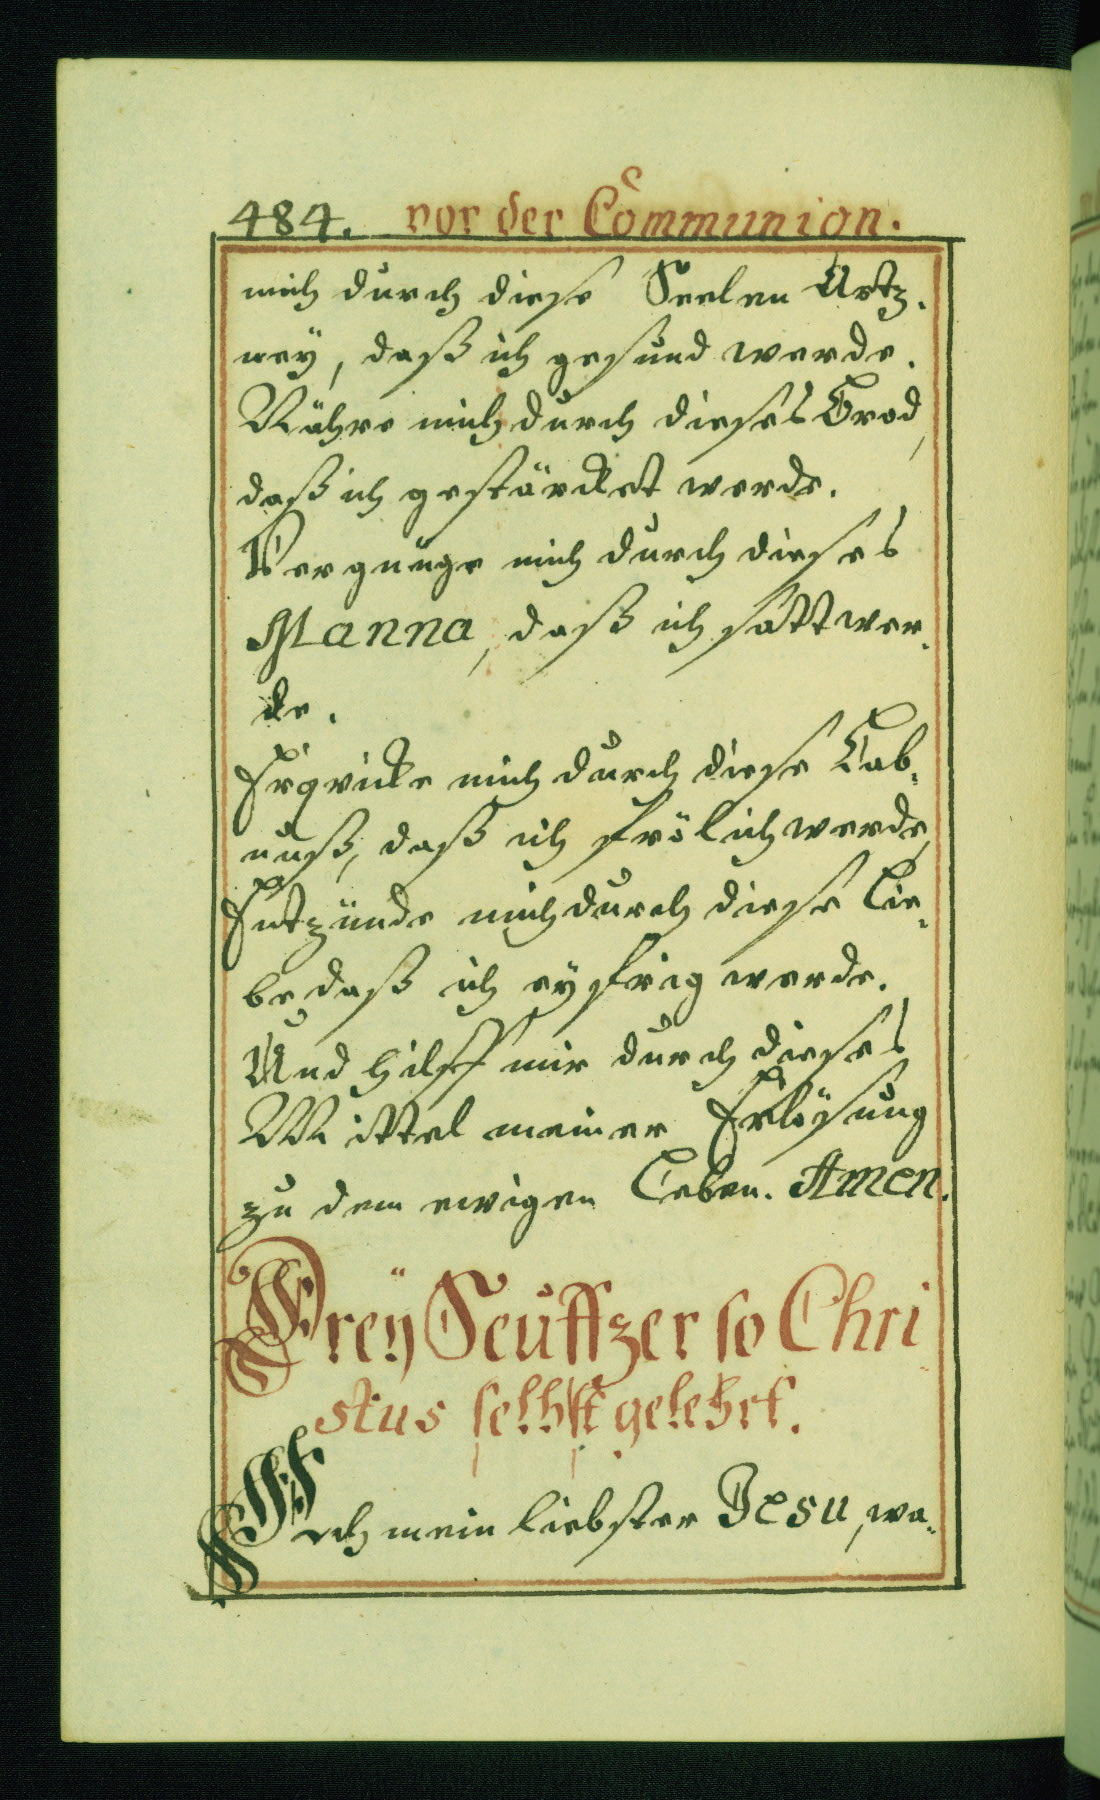 484. vor der Communion.
mich durch diese Seelen Artz-
ney, daß ich gesund werde.
Nähre mich durch dieses Brod,
daß ich gestärcket werde.
Vergnüge mich durch dieses
Manna, daß ich satt wer-
de.
Erqvicke mich durch diese Lab-
nuß, daß ich frölich werde,
Entzünde mich durch diese Lie-
be, daß ich eyfrig werde.
Und hilff mir durch dieses
Mittel meiner Erlösung
zu dem ewigen Leben. Amen.
Dreÿ Seuffzer so Chri-
stus selbst gelehrt.
Ach mein liebster Jesu, wa-